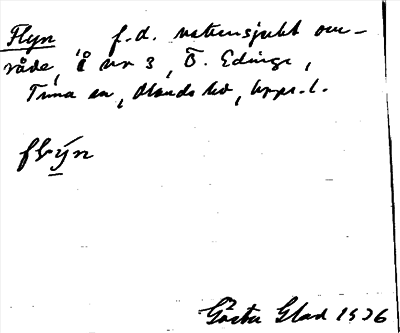 Flyn f.d. vattensjukt om-
råde, i nr 3, Ö. Edinge,
Tuna sn, Olands hd, Upps. l.
flýn
Gösta Glad 1926